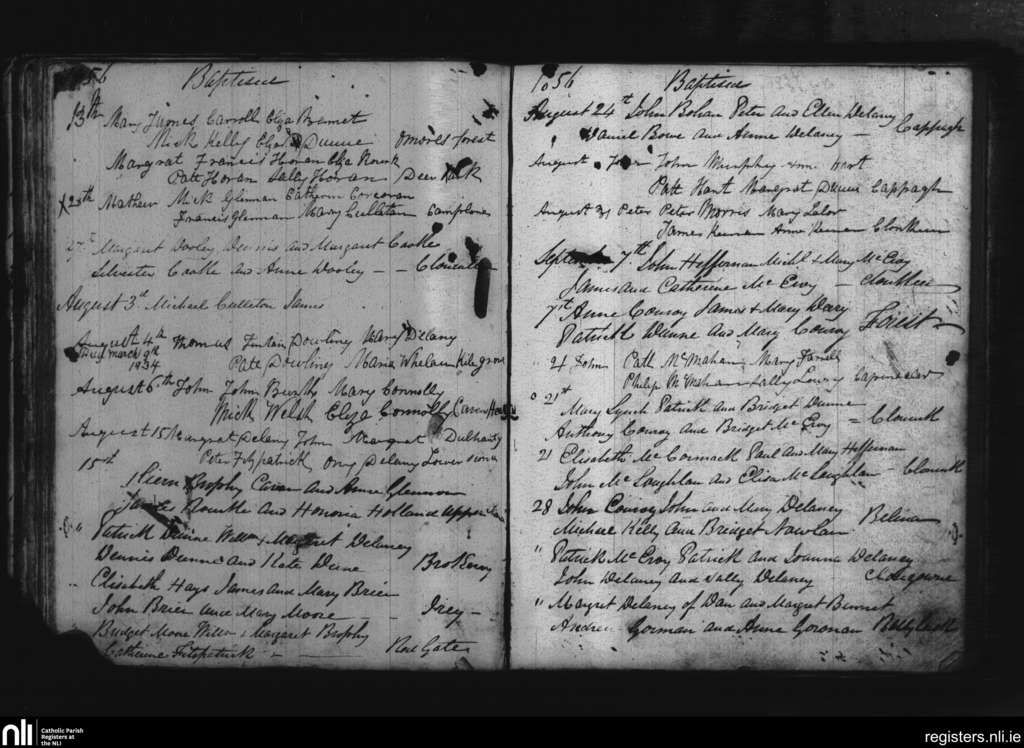 56 Baptised
13th Mary James Carroll Eliza Bennet
Mick Kelly Eliza Dunne Omores forest
Margrat Francis Horan Eliza
Patt Horan Sally Horan Deer Park
25th Mathew Mick Glennan Catherin Corcoran
Francis Glennan Mary Culleton
27 Margaret Dooley Dennis and Margaret Caake
Silvester Caake and Anne Dooley
August 3d Michael Culleton James
August 4th Thomas Fintan Dowling Mary Delany
March 9th
1934
Patt Dowling Maria Whelan
August 6th John John Burth Mary Connolly
Mick Welsh Eliza Connolly
August 15 Margrat Delany John Margrat
Peter Fitzpatrick Delany
15th
Kiern Brophy and Anne Glennon
James and Honoria Holland
" Patrick Dunne Willm & Margret Delaney
Dennis Dunne and Kate Dunne
" Elisabeth Hays James and Mary Brien
John Brien and Mary Moore - Irey -
" Bridget Moore Willm & Margaret Brophy
Catherine Fitzpatrick - - Red Gate
1856 Baptised
August 24th John Bohan Peter and Ellen Delaney
Daniel Bowe and Anne Delaney - Cappagh
August John Murphy Hart
Patt Hart Margrat Dunne Cappagh
August 31 Peter Peter Morris Mary Lalor
James Keenan Anne Keenan Clonkeen
September 7th John Heffernan Michl & Mary McEvoy
James and Catherine McEvoy - Clonkeen
7th Anne Conroy James & Mary Dary
Patrick Dunne and Mary Conroy Forest
21 John Patt McMahan Mary Farrell
Philip McMahan Sally Lowry
21st
Mary Lynch Patrick and Bridget Dunne
Anthony Conroy and Bridget McEvoy =
21 Elisabeth McCormack Paul and Mary Heffernan
John McLoughlan and Elisa McLoughlan -
28 John Conroy John and Mary Delaney
Michael Kelly and Bridget Nowlan
" Patrick McEvoy Patrick and Joanna Delaney
John Delaney and Sally Delaney
" Margret Delaney of Dan and Margret Bennet
Andrew Gorman and Anne Gorman
nli Catholic Parish
Registers at
the NLI
registers.nli.ie